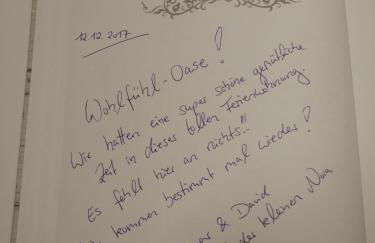 12.12.2017
Wohlfühl-Oase!
Wir hatten eine super schöne gemütliche
Zeit in dieser tollen Ferienwohnung.
Es fehlt hier an nichts!!
kommen bestimmt mal wieder!
& David
der kleinen Nora